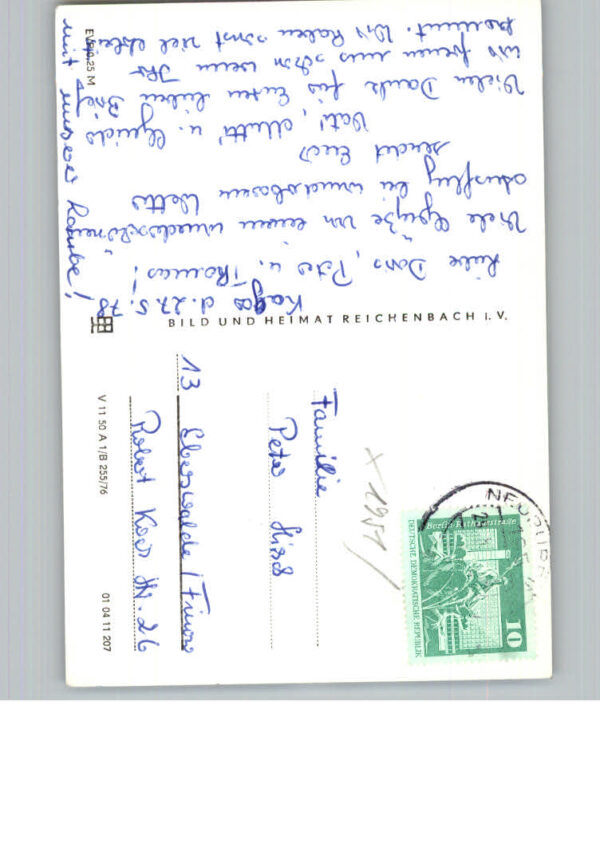 Kagar d. 27.5.78
Liebe Doris, Peter u. Thomas!
Viele Grüße von einem wunderschönen
Ausflug bei wunderbarem Wetter
sendet Euch
Vati, Mutti u. Guido
Vielen Dank für Euren lieben Brief
wir freuen uns schon wenn Ihr
kommt. Wir haben sonst viel Arbeit
mit unserer Laube!
EVP 0,25 M
BILD UND HEIMAT REICHENBACH I. V.
V 11 50 A 1/B 255/76
01 04 11 207
Familie
Peter
13 Eberswalde / Finow
Robert Koch Str. 26
x 1951
NEURUPP
Berlin Rathausstraße
DEUTSCHE DEMOKRATISCHE REPUBLIK
10